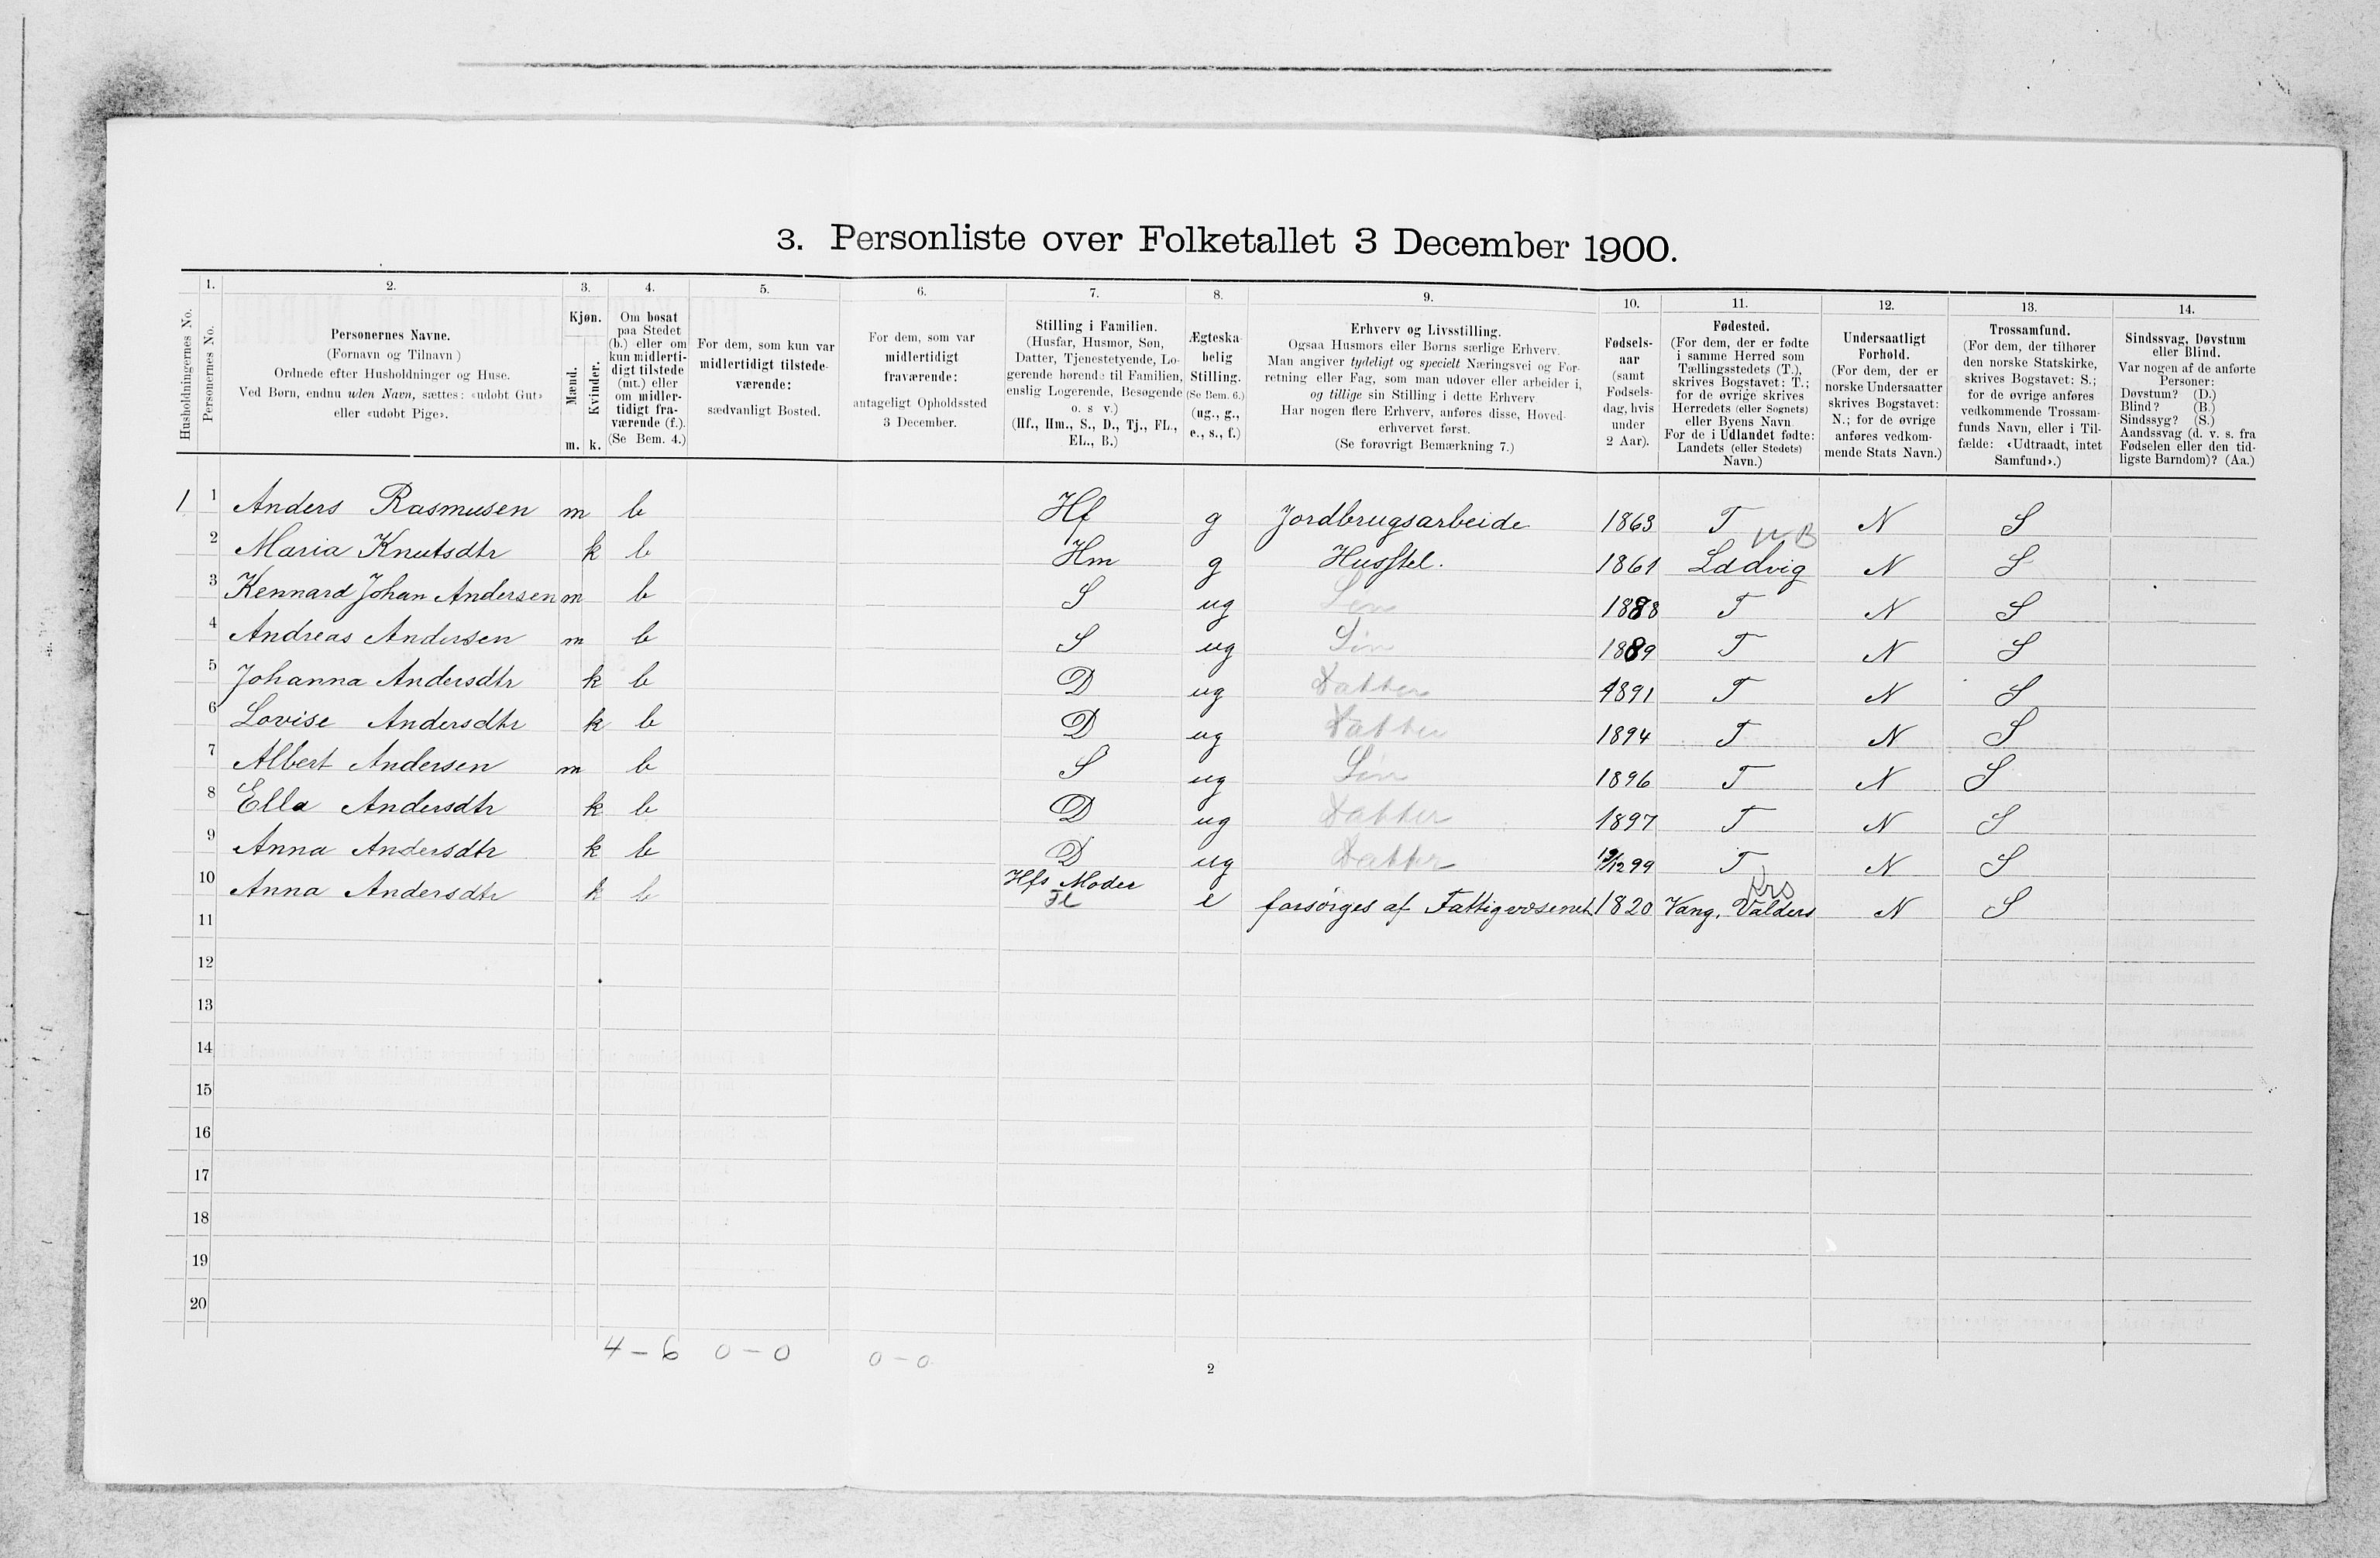 3. Personliste over Folketallet 3 December 1900.
1. 2. 3. 4. 5. 6. 7. 8. 9. 10. 11. 12. 13. 14.
Husholdningernes No.
Personernes No.
Personernes Navne.
(Fornavn og Tilnavn)
Ordnede efter Husholdninger og Huse.
Ved Børn, endnu uden Navn, sættes: «udøbt Gut»
eller «udøbt Pige».
Kjøn.
Mænd.
Kvinder.
m. k.
Om bosat
paa Stedet
(b.) eller om
kun midlerti-
digt tilstede
(mt.) eller
om midler-
tidigt fra-
værende (f.).
(Se Bem. 4.)
For dem, som kun var
midlertidigt tilstede-
værende:
sædvanligt Bosted.
For dem, som var
midlertidigt
fraværende:
antageligt Opholdssted
3 December.
Stilling i Familien.
(Husfar, Husmor, Søn,
Datter, Tjenestetyende, Lo-
gerende hørende til Familien,
enslig Logerende, Besøgende
o. s v.)
(Hf., Hm., S., D., Tj., FL.,
EL., B.)
Ægteska-
belig
Stilling.
(Se Bem. 6.)
(ug., g.,
e., s., f.)
Erhverv og Livsstilling.
Ogsaa Husmors eller Børns særlige Erhverv.
Man angiver tydeligt og specielt Næringsvei og For-
retning eller Fag, som man udøver eller arbeider i,
og tillige sin Stilling i dette Erhverv
Har nogen flere Erhverv, anføres disse, Hoved-
erhvervet først.
(Se forøvrigt Bemærkning 7.)
Fødsels-
aar
(samt
Fødsels-
dag, hvis
under
2 Aar).
Fødested.
(For dem, der er fødte
i samme Herred som
Tællingsstedets (T.),
skrives Bogstavet: T.;
for de øvrige skrives
Herredets (eller Sognets)
eller Byens Navn
For de i Udlandet fødte:
Landets (eller Stedets)
Navn.)
Undersaatligt
Forhold.
(For dem, der er
norske Undersaatter
skrives Bogstavet:
N.; for de øvrige
anføres vedkom-
mende Stats Navn.)
Trossamfund.
(For dem, der tilhører
den norske Statskirke,
skrives Bogstavet: S.;
for de øvrige anføres
vedkommende Trossam-
funds Navn, eller i Til-
fælde: «Udtraadt, intet
Samfund».)
Sindssvag, Døvstum
eller Blind.
Var nogen af de anførte
Personer:
Døvstum? (D.)
Blind? (B.)
Sindssyg? (S.)
Aandssvag (d. v. s. fra
Fødselen eller den tid-
ligste Barndom)? (Aa.)
1 1 Anders Rasmusen m b Hf g Jordbrugsarbeide 1863 T N S
2 Maria Knutsdtr k b Hm g Husstel. 1861 Ladvig N S
3 Kennard Johan Andersen m b S ug Søn 1888 T N S
4 Andreas Andersen m b S ug Søn 1889 T N S
5 Johanna Andersdtr k b D ug Datter 1891 T N S
6 Lovise Andersdtr k b D ug Datter 1894 T N S
7 Albert Andersen m b S ug Søn 1896 T N S
8 Ella Andersdtr k b D ug Datter 1897 T N S
9 Anna Andersdtr k b D ug Datter 19/12 99 T N S
Hfs Moder
10 Anna Andersdtr k b Fl e forsørges af Fattigvæsenet 1820 Vang, Valders N S
11
12
13
14
15
16
17
18
19
20
4 - 6 0 - 0 0 - 0
2